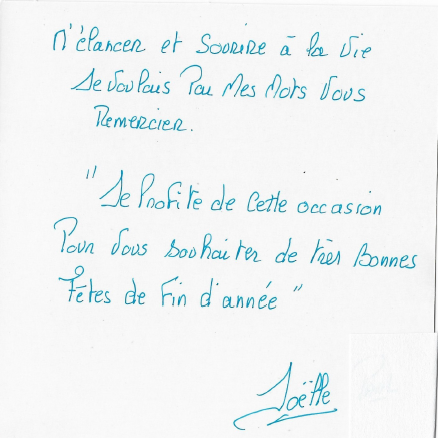 m'élancer et Sourire à la Vie
Je Voulais Par Mes Mots Vous
Remercier.
"Je Profite de Cette occasion
Pour Vous souhaiter de très Bonnes
Fêtes de Fin d'année"
Joëlle